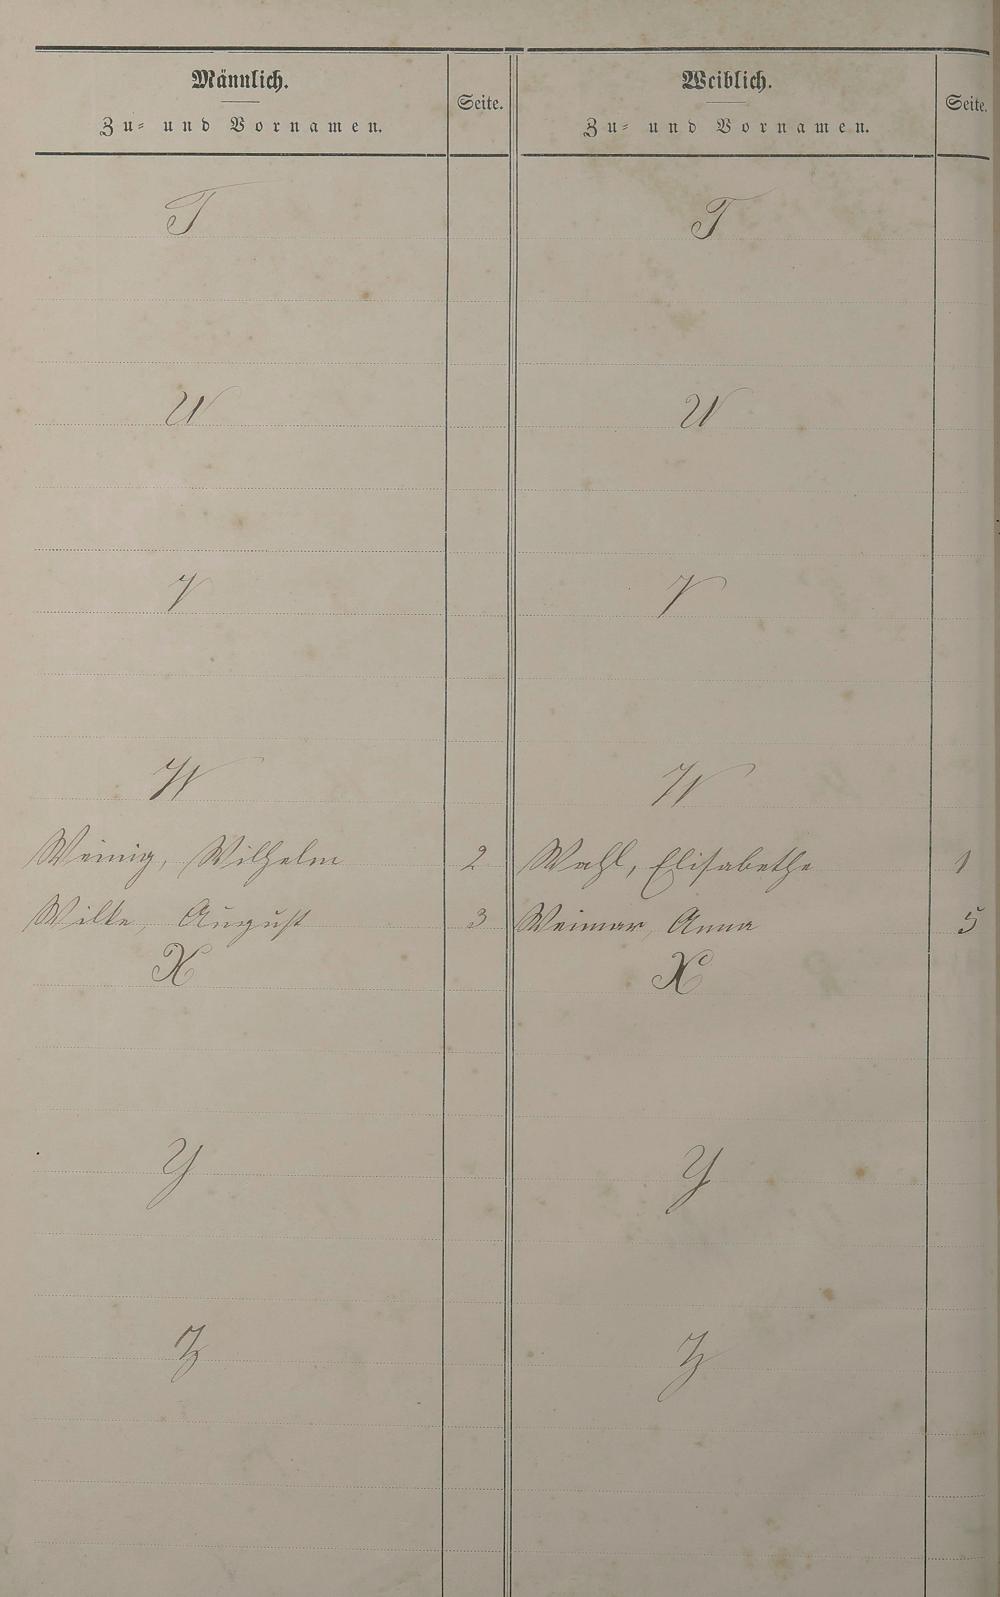 Männlich.
Zu- und Vornamen.
Seite.
Weiblich.
Zu- und Vornamen.
Seite.
T
T
U
U
V
V
W
W
Weinig, Wilhelm 2
Wahl, Elisabethe 1
Wilke, August 3
Weimar, Anna 5
X
X
Y
Y
Z
Z